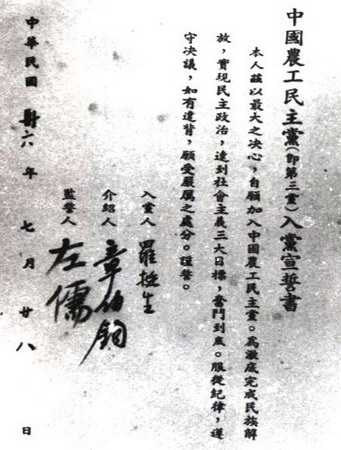 中國農工民主黨(即第三黨)入黨宣誓書
本人茲以最大之決心，自願加入中國農工民主黨。為澈底完成民族解
放，實現民主政治，達到社會主義三大目標，奮鬥到底。服從紀律，遵
守决議，如有違背，願受嚴厲之處分。謹誓。
入黨人 羅挺生
介紹人 章伯鈞
監誓人 左儒
中華民國卅六年七月廿八日